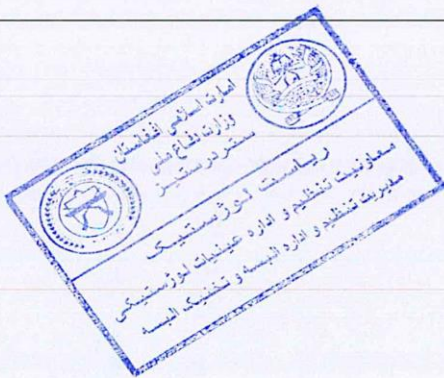 امارت اسلامی افغانستان
وزارت دفاع ملی
ستردرستیز
ریاست لوژستیک
معاونیت تنظیم و اداره عینیات لوژستیکی
مدیریت تنظیم و اداره البسه و تخنیک البسه